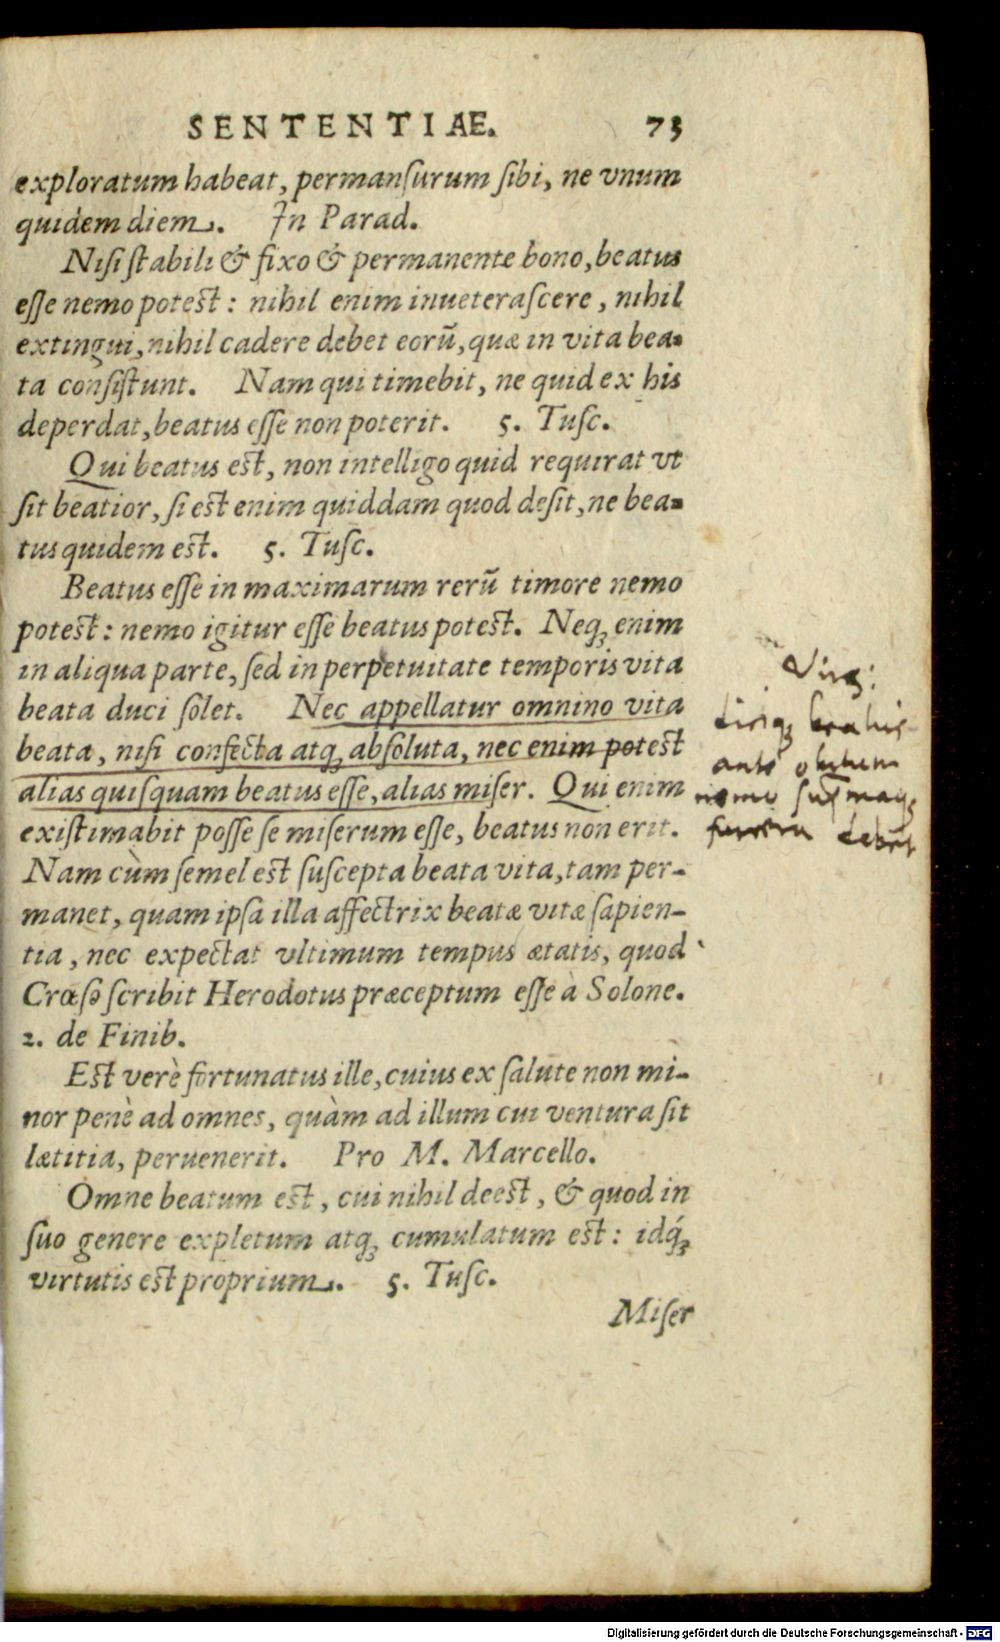 SENTENTIAE. 73
exploratum habeat, permanſurum ſibi, ne vnum
quidem diem. In Parad.
Niſi ſtabili & fixo & permanente bono, beatus
eſſe nemo poteſt: nihil enim inueteraſcere, nihil
extingui, nihil cadere debet eorũ, quæ in vita bea-
ta conſiſtunt. Nam qui timebit, ne quid ex his
deperdat, beatus eſſe non poterit. 5. Tuſc.
Qui beatus eſt, non intelligo quid requirat vt
ſit beatior, ſi eſt enim quiddam quod deſit, ne bea-
tus quidem eſt. 5. Tuſc.
Beatus eſſe in maximarum rerũ timore nemo
poteſt: nemo igitur eſſe beatus poteſt. Neqꝫ enim
in aliqua parte, ſed in perpetuitate temporis vita
beata duci ſolet. Nec appellatur omnino vita
beata, niſi confecta atqꝫ abſoluta, nec enim poteſt
alias quiſquam beatus eſſe, alias miſer. Qui enim
exiſtimabit poſſe ſe miſerum eſſe, beatus non erit.
Nam cùm ſemel eſt ſuſcepta beata vita, tam per-
manet, quam ipſa illa affectrix beatæ vitæ ſapien-
tia, nec expectat vltimum tempus ætatis, quod
Crœſo ſcribit Herodotus præceptum eſſe à Solone.
2. de Finib.
Eſt verè fortunatus ille, cuius ex ſalute non mi-
nor penè ad omnes, quàm ad illum cui ventura ſit
lætitia, peruenerit. Pro M. Marcello.
Omne beatum eſt, cui nihil deeſt, & quod in
ſuo genere expletum atqꝫ cumulatum eſt: idq́ꝫ
virtutis eſt proprium. 5. Tuſc.
Miſer
diciqꝫ beatus
ante obitum
nemo
debet
Digitalisierung gefördert durch die Deutsche Forschungsgemeinschaft - DFG